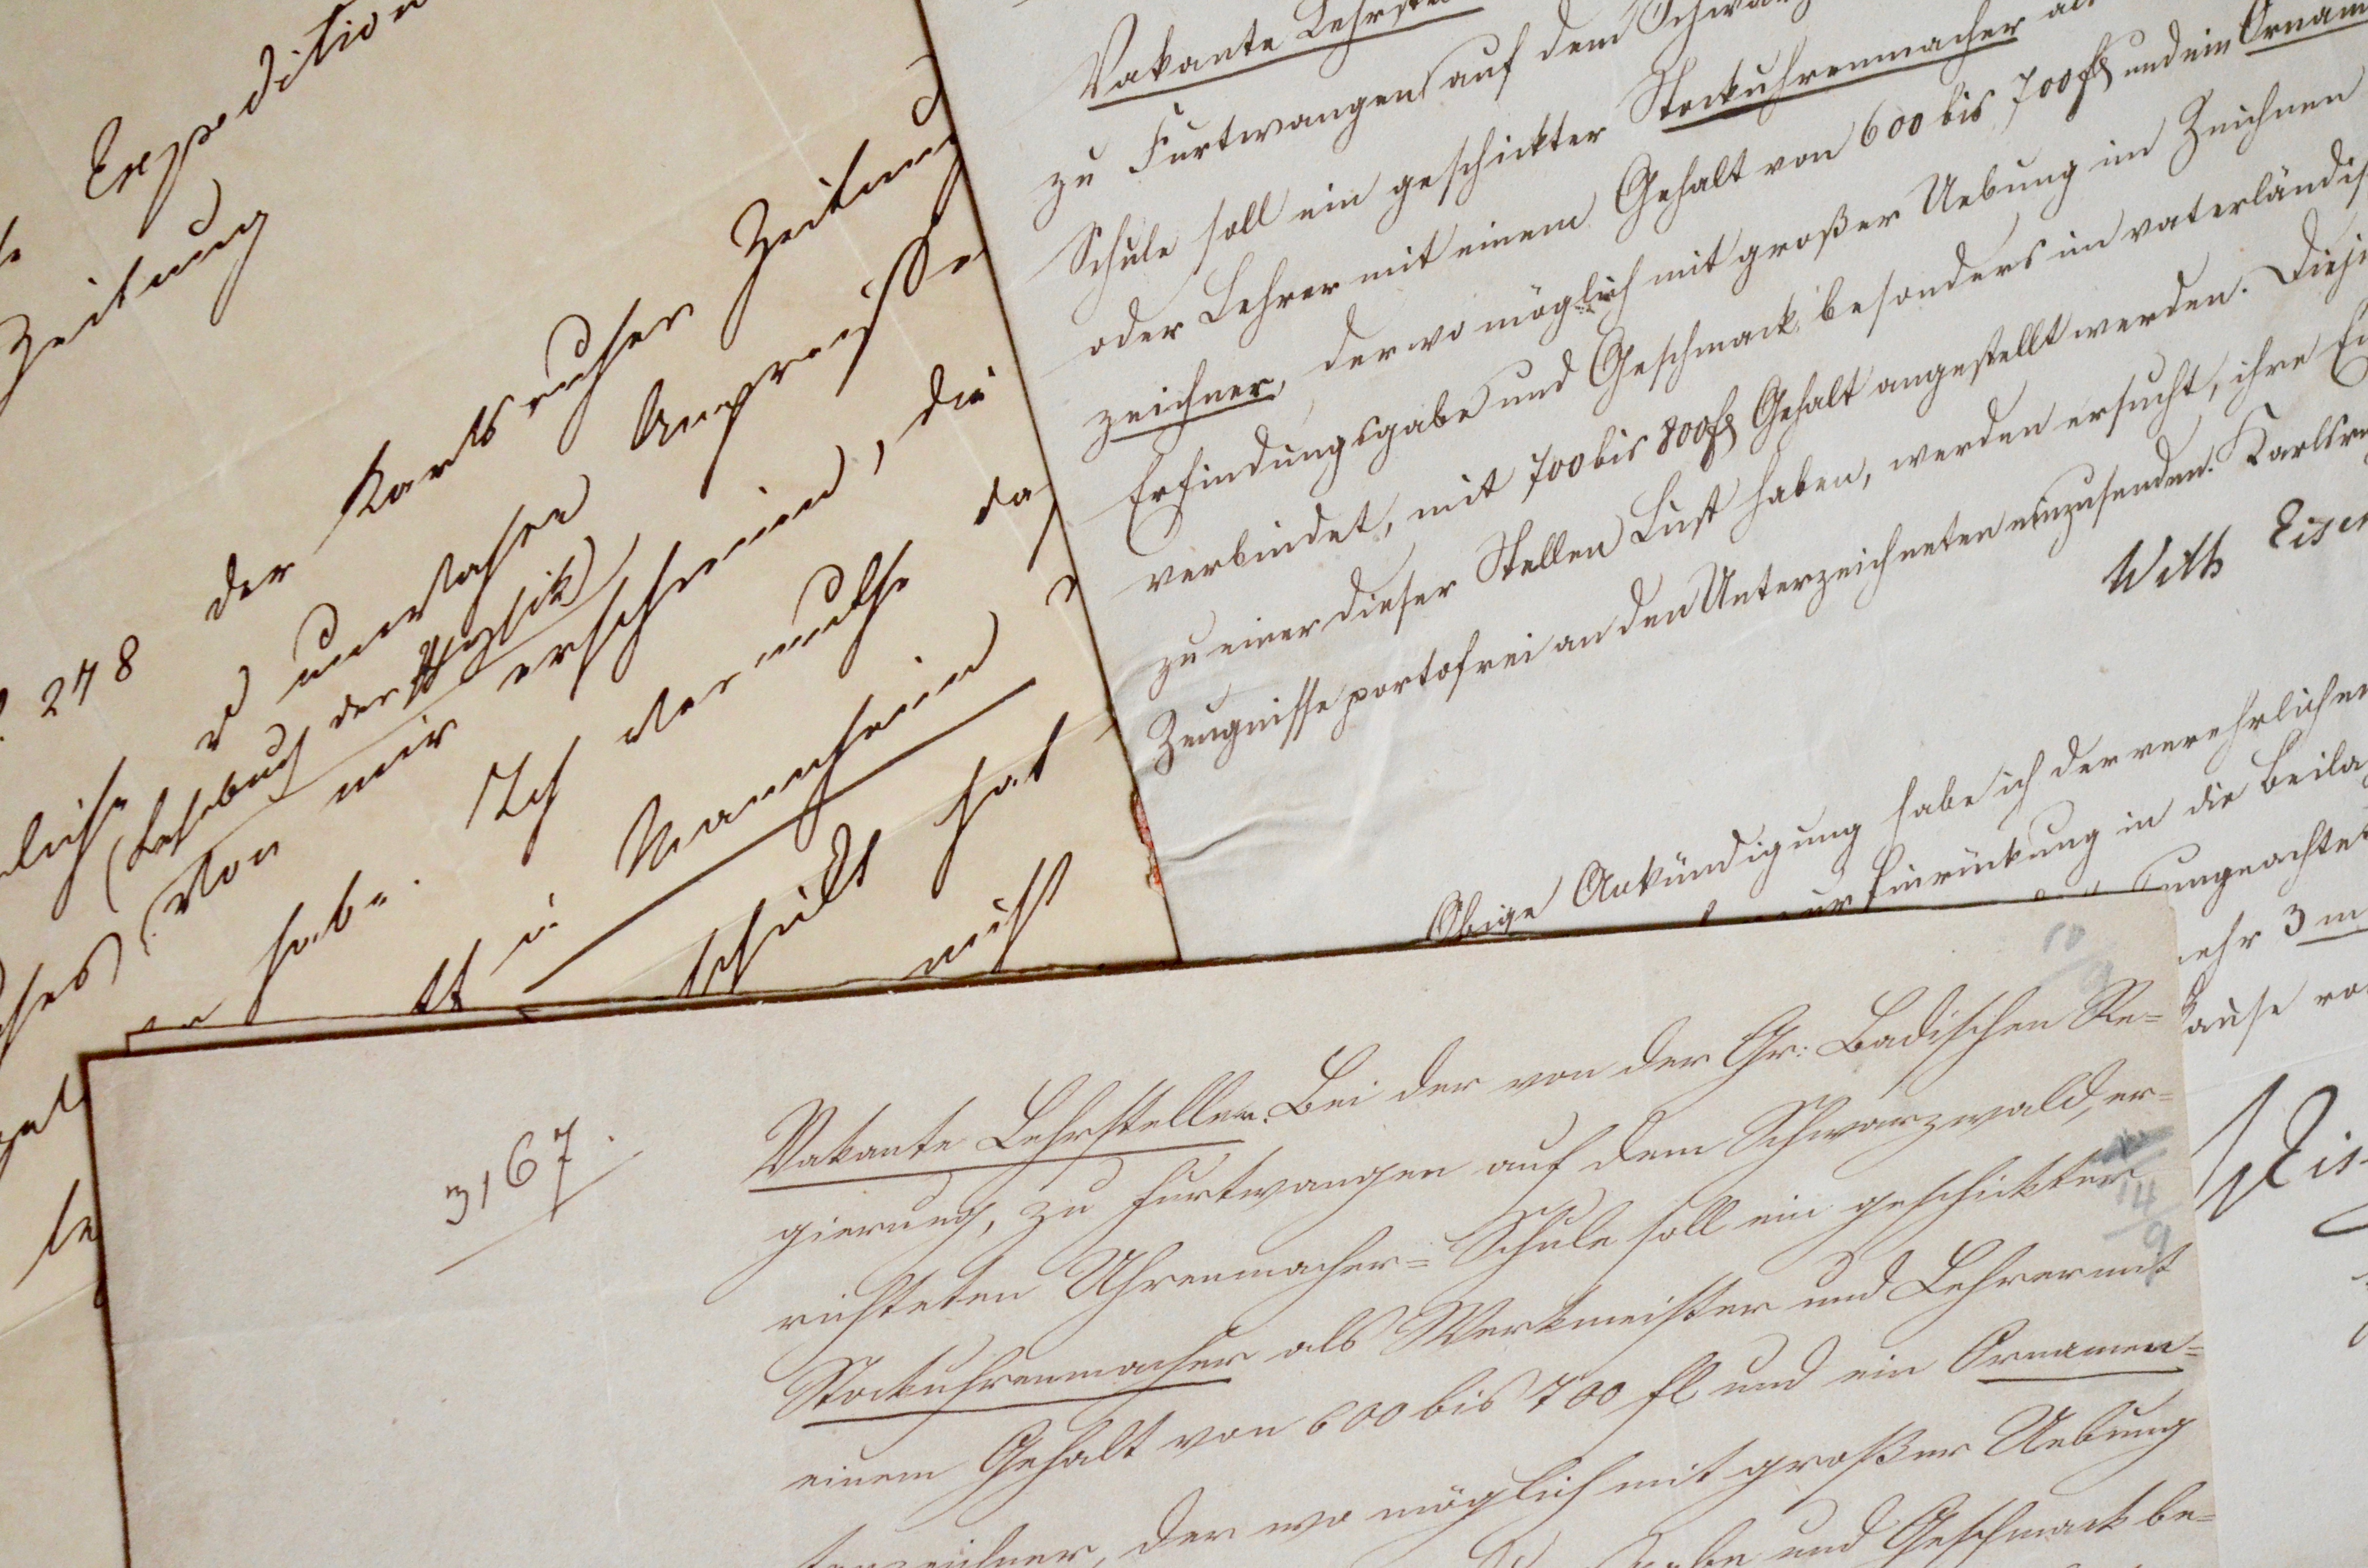 Expedition
Zeitung
248 der Karlsruher Zeitung
unwahre Anpreisse
(Lehrbuch der Physik)
von mir erschienen, die
habe. Ich vermuthe da
in Mannheim
schickt hat
nicht
Vakante Lehrstel
zu Furtwangen auf dem Schwarz
Schule soll ein geschickter Stockuhrenmacher als
oder Lehrer mit einem Gehalt von 600 bis 700 fl und ein Ornam
zeichner, der wo möglich mit großer Uebung im Zeichnen
Erfindungsgabe und Geschmack besonders im vaterländis
verbindet, mit 700 bis 800 fl Gehalt angestellt werden. Dieje
zu einer dieser Stellen Lust haben, werden ersucht, ihre
Zeugnisse portofrei an den Unterzeichneten einzusenden. Karlsru
Wilh Eisen
Obige Ankündigung habe ich der verehrlichen
zur Einrückung in die Beila
ungeachtet
mehr 3 m
Hause
3167.
Vakante Lehrstellen. Bei der von der Gr: Badischen Re=
gierung, zu Furtwangen auf dem Schwarzwald, er=
richteten Uhrenmacher=Schule soll ein geschickter
Stockuhrenmacher als Werkmeister und Lehrer mit
einem Gehalt von 600 bis 700 fl und ein Ornamen=
tenzeichner, der wo möglich mit großer Uebung
und Geschmack be=
14/9